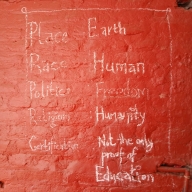 Place Earth
Race Human
Politics Freedom
Religion Humanity
Certification Not the only
proof of
Education